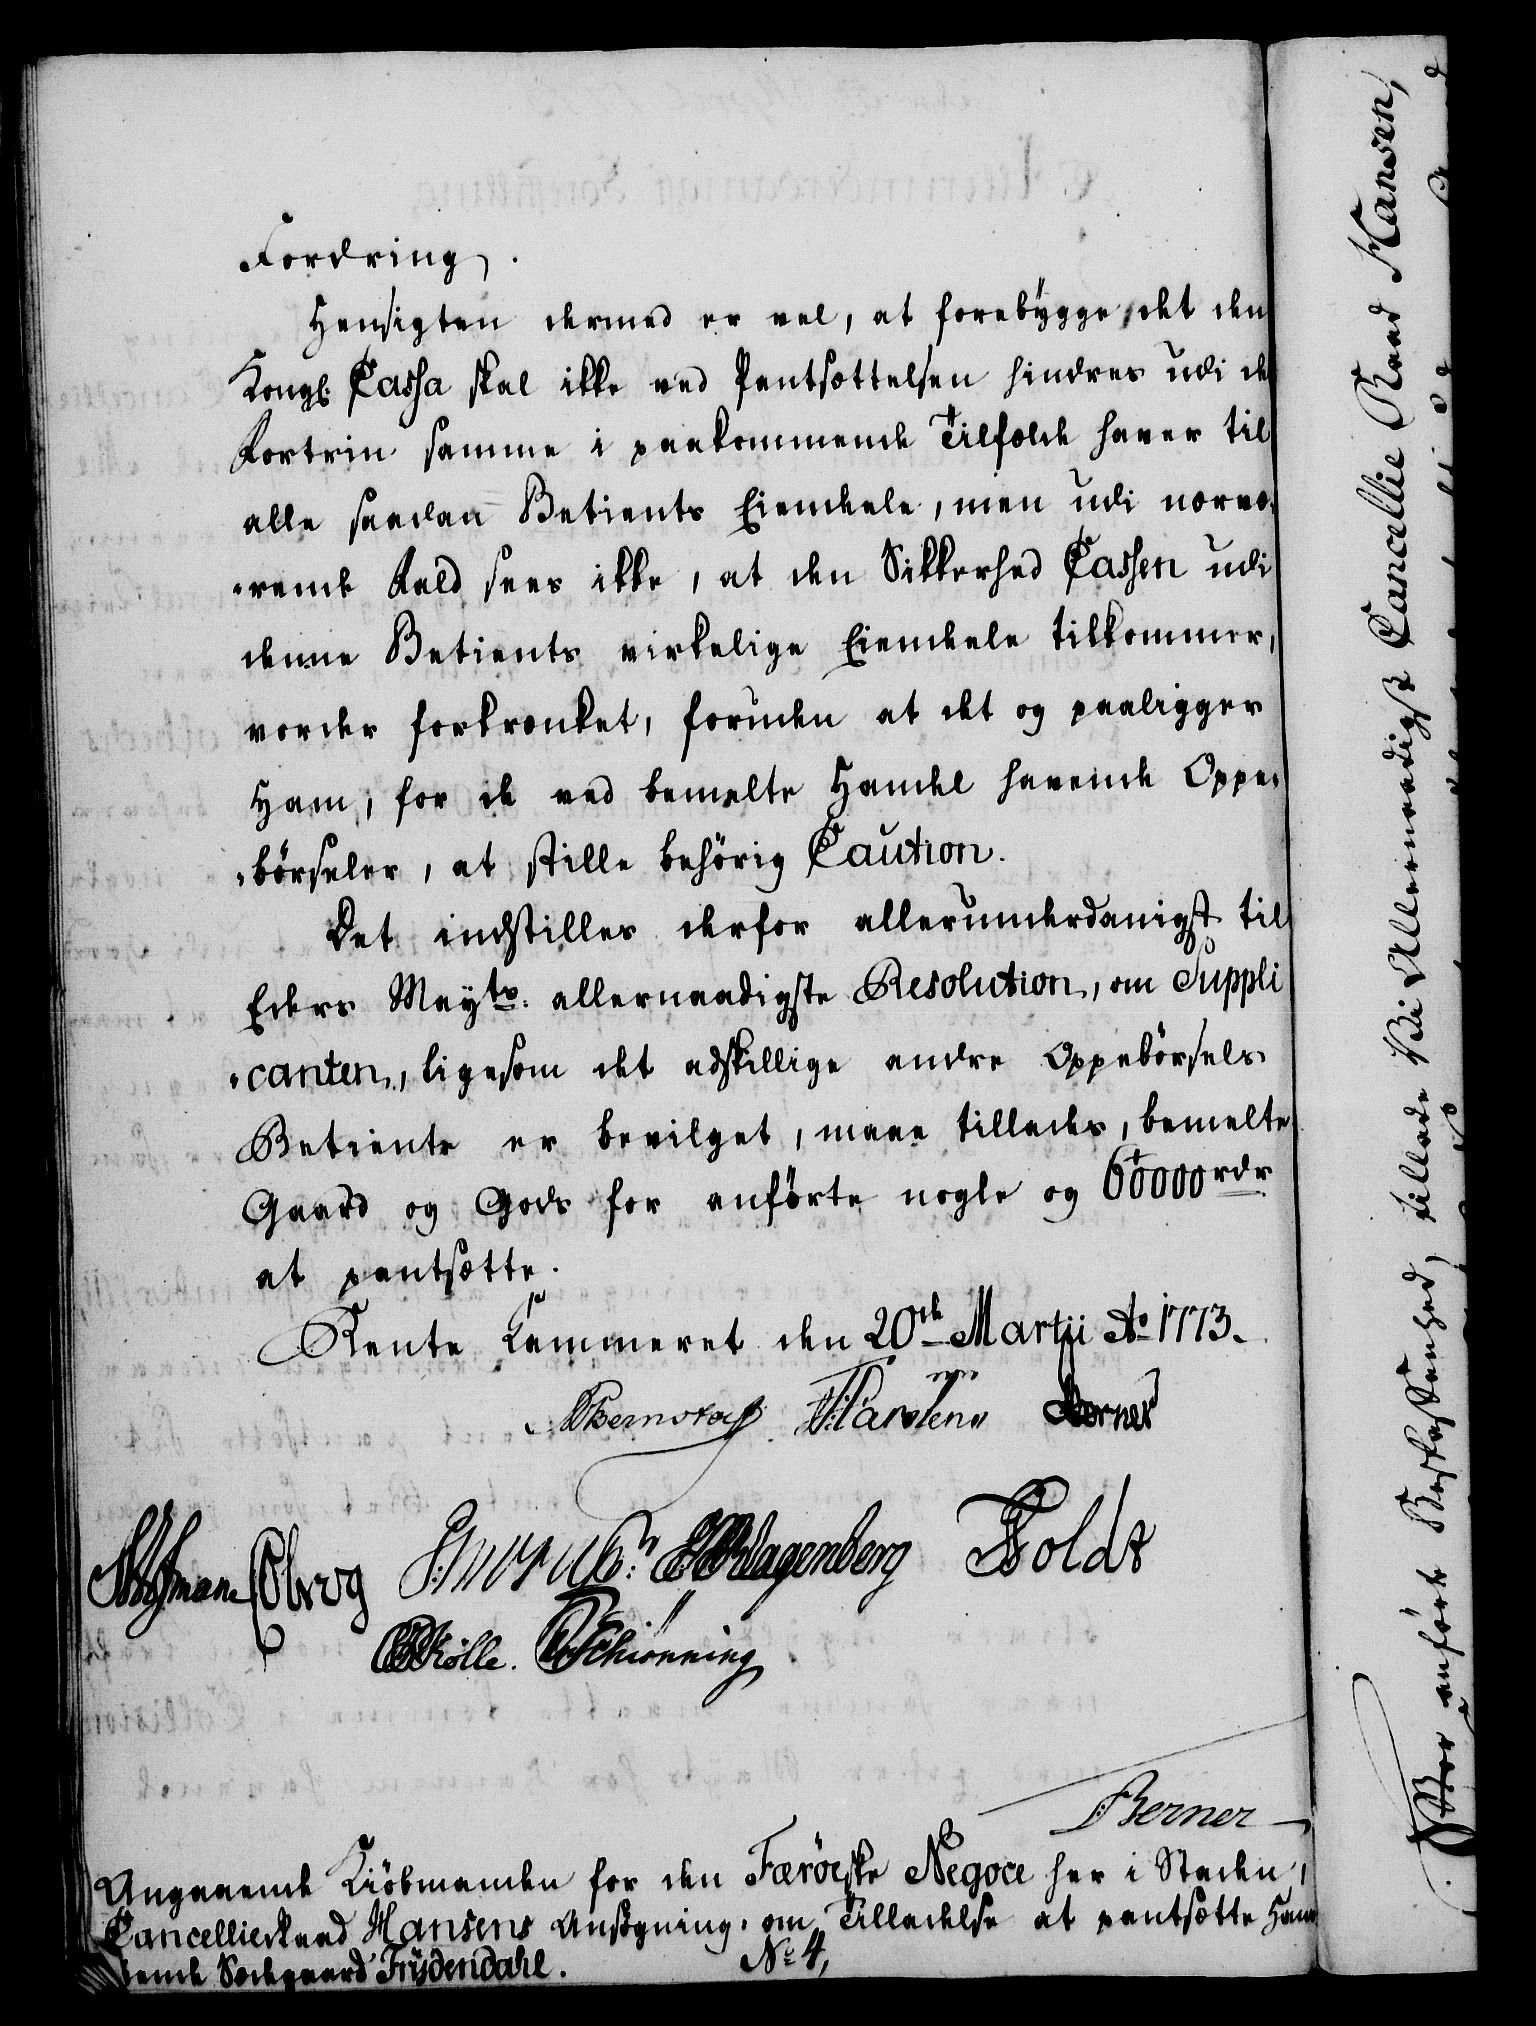 Fordring.
Hensigten dermed er vel, at forebygge, det den
Kongl: Cassa skal ikke ved Pantsættelsen hindres udi de
Fortrin samme i paakommende Tilfælde haver til
alle saadan Betients Eiendele, men udi nærvæ¬
¬rende Fald sees ikke, at den Sikkerhed Cassen udi
denne Betients virkelige Eiendele tilkommer,
vorder forkrænket, foruden at det og paaligger
Ham, for de ved bemelte Handel havende Oppe¬
¬börseler, at stille behörig Caution.
Det indstilles derfor allerunderdanigst til
Eders Mayts: allernaadigste Resolution, om Suppli
¬canten, ligesom det adskillige andre Oppebörsels
Betiente er bevilget, maae tillades, bemelte
Gaard og Gods for anførte nogle og 60000 rdr
at pantsætte.
Rente Kammeret den 20de Martii Ao 1773.
Berner
Hofman Obrog Wagenberg Holdt
Kölle. Schiønning
Berner
Angaaende Kiöbmanden for den Færöeske Negoce her i Staden,
Cancellieraad Hansens Ansögning, om Tilladelse at pantsætte Hans
Sædegaard Frÿdendahl.
No 4,
Vor anförte Beskaffenhed, tillade Vi Allernaadigst Cancellie Raad Hansen,